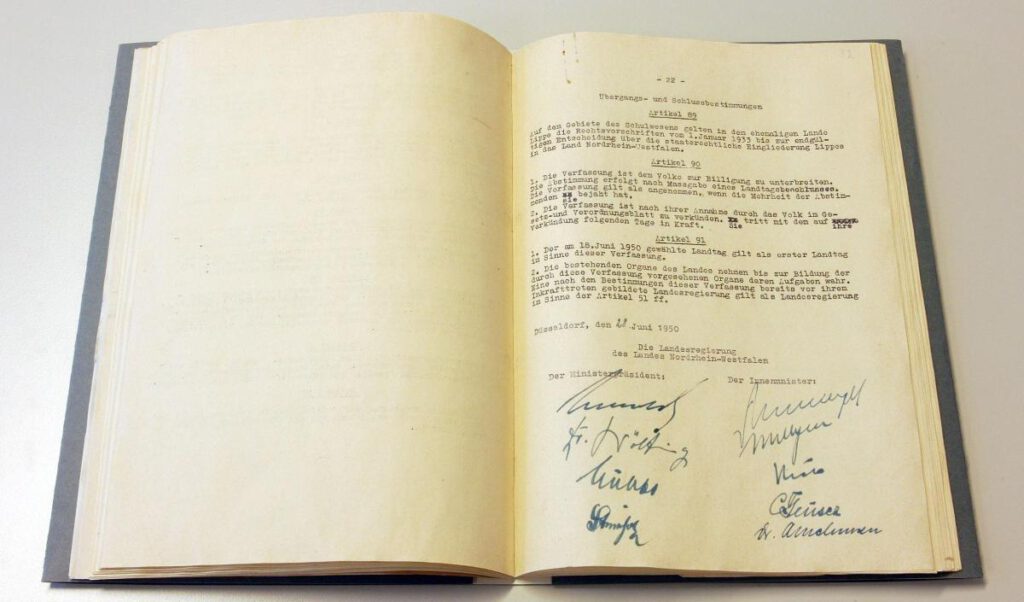 - 22 -
Übergangs- und Schlussbestimmungen
Artikel 89
Auf dem Gebiete des Schulwesens gelten in dem ehemaligen Lande
Lippe die Rechtsvorschriften vom 1.Januar 1933 bis zur endgül-
tigen Entscheidung über die staatsrechtliche Eingliederung Lippes
in das Land Nordrhein-Westfalen.
Artikel 90
1. Die Verfassung ist dem Volke zur Billigung zu unterbreiten.
Die Abstimmung erfolgt nach Massgabe eines Landtagsbeschlusses.
Die Verfassung gilt als angenommen, wenn die Mehrheit der Abstim-
menden sie bejaht hat.
2. Die Verfassung ist nach ihrer Annahme durch das Volk im Ge-
setz-und Verordnungsblatt zu verkünden. Sie tritt mit dem auf ihre
Verkündung folgenden Tage in Kraft.
Artikel 91
1. Der am 18.Juni 1950 gewählte Landtag gilt als erster Landtag
im Sinne dieser Verfassung.
2. Die bestehenden Organe des Landes nehmen bis zur Bildung der
durch diese Verfassung vorgesehenen Organe deren Aufgaben wahr.
Eine nach den Bestimmungen dieser Verfassung bereits vor ihrem
Inkrafttreten gebildete Landesregierung gilt als Landesregierung
im Sinne der Artikel 51 ff.
Düsseldorf, den 28 Juni 1950
Die Landesregierung
des Landes Nordrhein-Westfalen
Der Ministerpräsident: Der Innenminister:
Dr.
Dr. Amelunxen